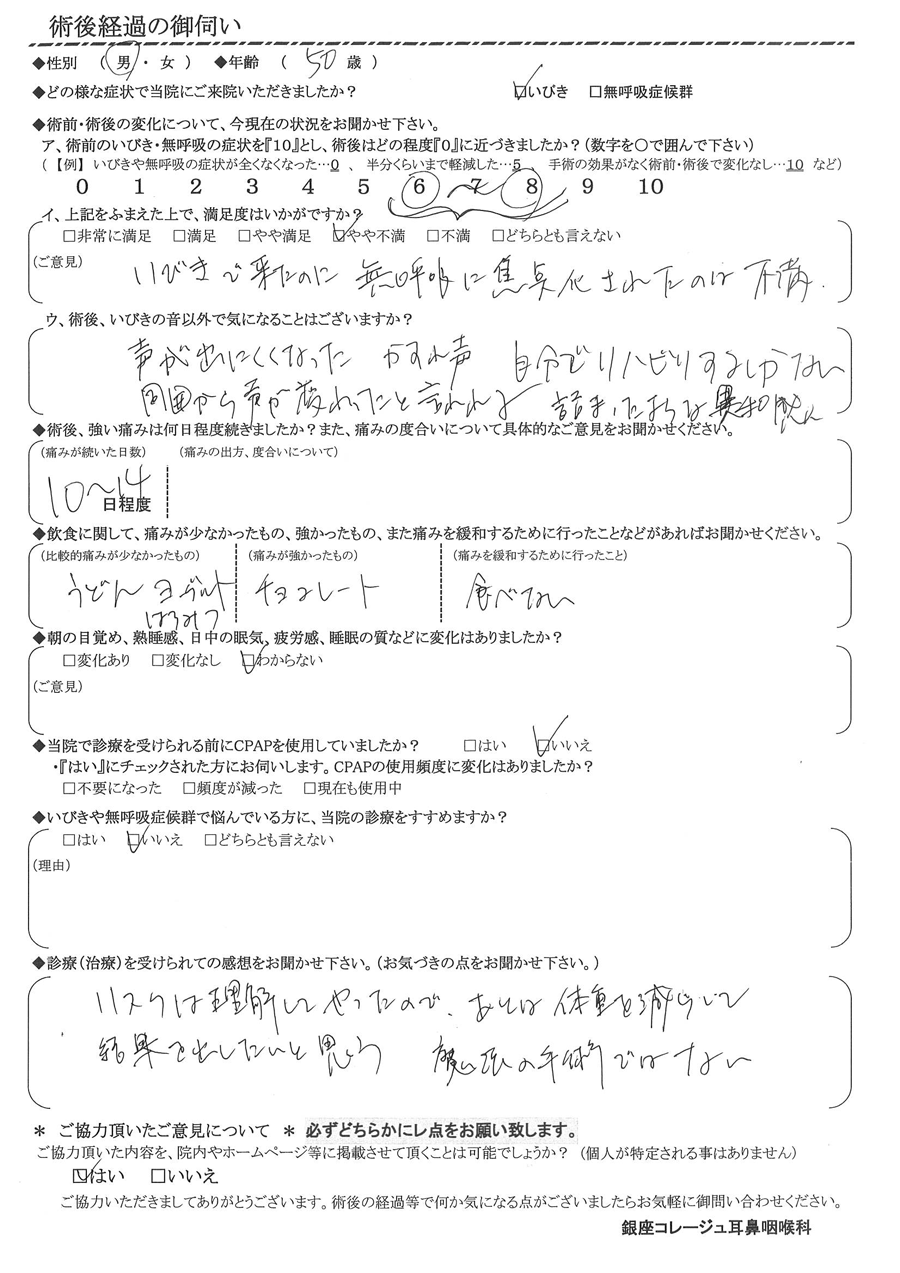 術後経過の御伺い
◆性別 ( 男 ・ 女 ) ◆年齢 ( 50 歳 )
◆どの様な症状で当院にご来院いただきましたか? ☑いびき □無呼吸症候群
◆術前・術後の変化について、今現在の状況をお聞かせ下さい。
ア、術前のいびき・無呼吸の症状を『10』とし、術後はどの程度『0』に近づきましたか?(数字を○で囲んで下さい)
(【例】いびきや無呼吸の症状が全くなくなった…0 、 半分くらいまで軽減した…5 、 手術の効果がなく術前・術後で変化なし…10 など)
0 1 2 3 4 5 6 〜 7 8 9 10
イ、上記をふまえた上で、満足度はいかがですか?
□非常に満足 □満足 □やや満足 ☑やや不満 □不満 □どちらとも言えない
(ご意見)
いびきで来たのに 無呼吸に焦点化されたのは 不満.
ウ、術後、いびきの音以外で気になることはございますか?
声が出にくくなった かすれ声 自分でリハビリするしかない
周囲から声が変わったと言われる 詰まったような異和感
◆術後、強い痛みは何日程度続きましたか?また、痛みの度合いについて具体的なご意見をお聞かせください。
(痛みが続いた日数) (痛みの出方、度合いについて)
10〜14
日程度
◆飲食に関して、痛みが少なかったもの、強かったもの、また痛みを緩和するために行ったことなどがあればお聞かせください。
(比較的痛みが少なかったもの) (痛みが強かったもの) (痛みを緩和するために行ったこと)
うどん ヨーグルト チョコレート 食べない
はちみつ
◆朝の目覚め、熟睡感、日中の眠気、疲労感、睡眠の質などに変化はありましたか?
□変化あり □変化なし ☑わからない
(ご意見)
◆当院で診療を受けられる前にCPAPを使用していましたか? □はい ☑いいえ
・『はい』にチェックされた方にお伺いします。CPAPの使用頻度に変化はありましたか?
□不要になった □頻度が減った □現在も使用中
◆いびきや無呼吸症候群で悩んでいる方に、当院の診療をすすめますか?
□はい ☑いいえ □どちらとも言えない
(理由)
◆診療(治療)を受けられての感想をお聞かせ下さい。(お気づきの点をお聞かせ下さい。)
リスクは理解してやったので、あとは体重を減らして
結果を出したいと思う の手術ではない
＊ ご協力頂いたご意見について ＊ 必ずどちらかにレ点をお願い致します。
ご協力頂いた内容を、院内やホームページ等に掲載させて頂くことは可能でしょうか? (個人が特定される事はありません)
☑はい □いいえ
ご協力いただきましてありがとうございます。術後の経過等で何か気になる点がございましたらお気軽に御問い合わせください。
銀座コレージュ耳鼻咽喉科